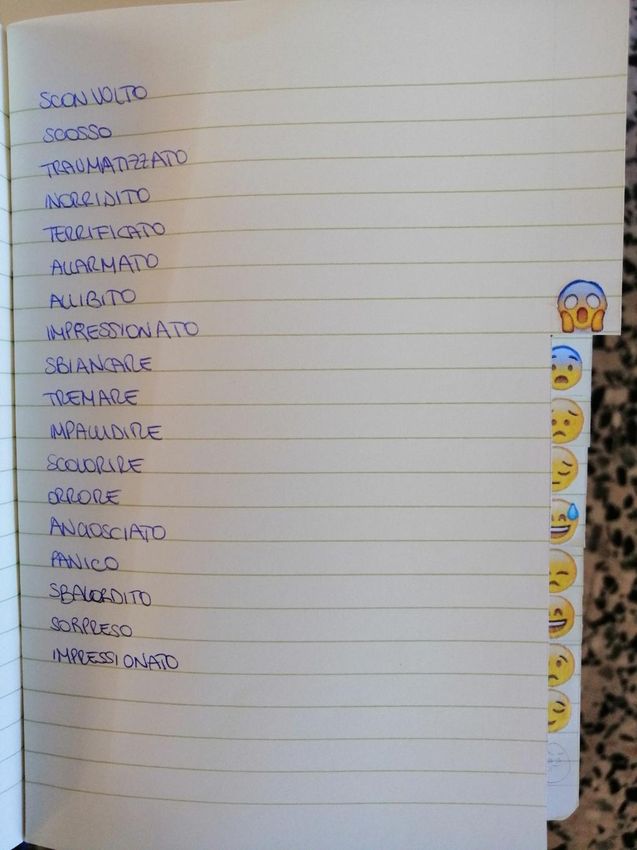 SCONVOLTO
SCOSSO
TRAUMATIZZATO
INORRIDITO
TERRIFICATO
ALLARMATO
ALLIBITO
IMPRESSIONATO
SBIANCARE
TREMARE
IMPALLIDIRE
SCOLORIRE
ORRORE
ANGOSCIATO
PANICO
SBALORDITO
SORPRESO
IMPRESSIONATO